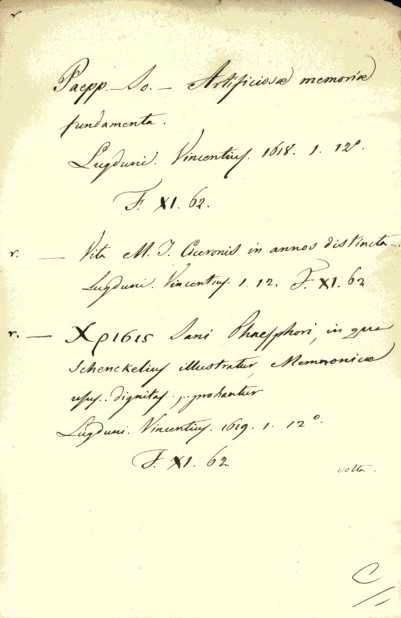 r.
Paepp. — Jo. — Artificiosæ memoriæ
fundamenta.
Lugduni. Vincentius. 1618. 1. 12º.
F. XI. 62.
r. — Vita M. T. Ciceronis in annos distincta...
Lugduni. Vincentius. 1. 12. F. XI. 62
r. — Χρισις Jani Phaosphori, in qua
Schenckelius illustratur, Memnonicæ
usus.. dignitas,.. probantur
Lugduni. Vincentius. 1619. 1. 12º.
F. XI. 62
volta.